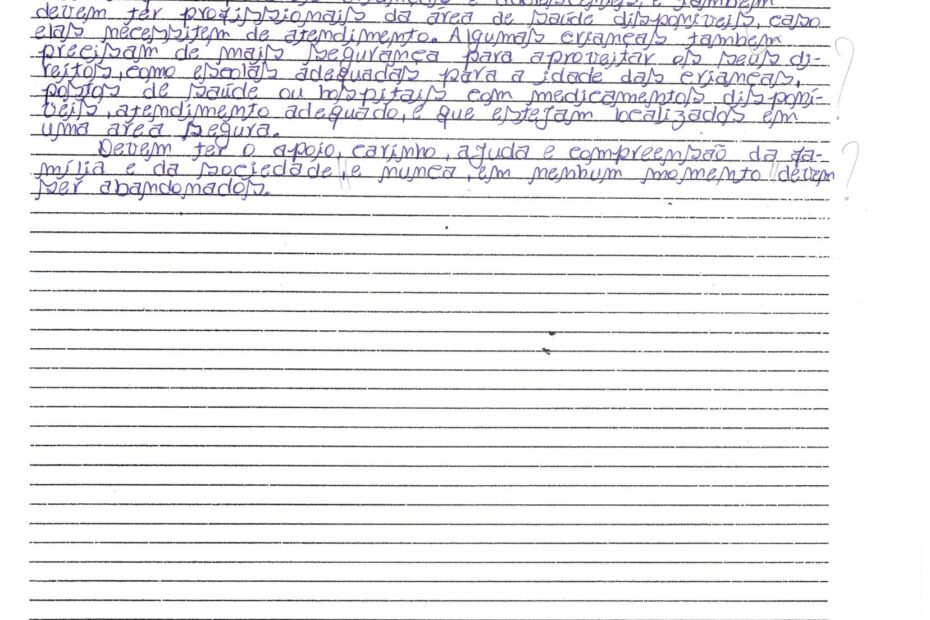 e também
devem ter profissionais da área de saúde disponíveis, caso
elas necessitem de atendimento. Algumas crianças também
precisam de mais segurança para aproveitar os seus di-
reitos, como escolas adequadas para a idade das crianças,
postos de saúde ou hospitais com medicamentos disponí-
veis, atendimento adequado, e que estejam localizados em
uma área segura.
Devem ter o apoio, carinho, ajuda e compreensão da fa-
mília e da sociedade, e nunca, em nenhum momento devem
ser abandonados.
?
?